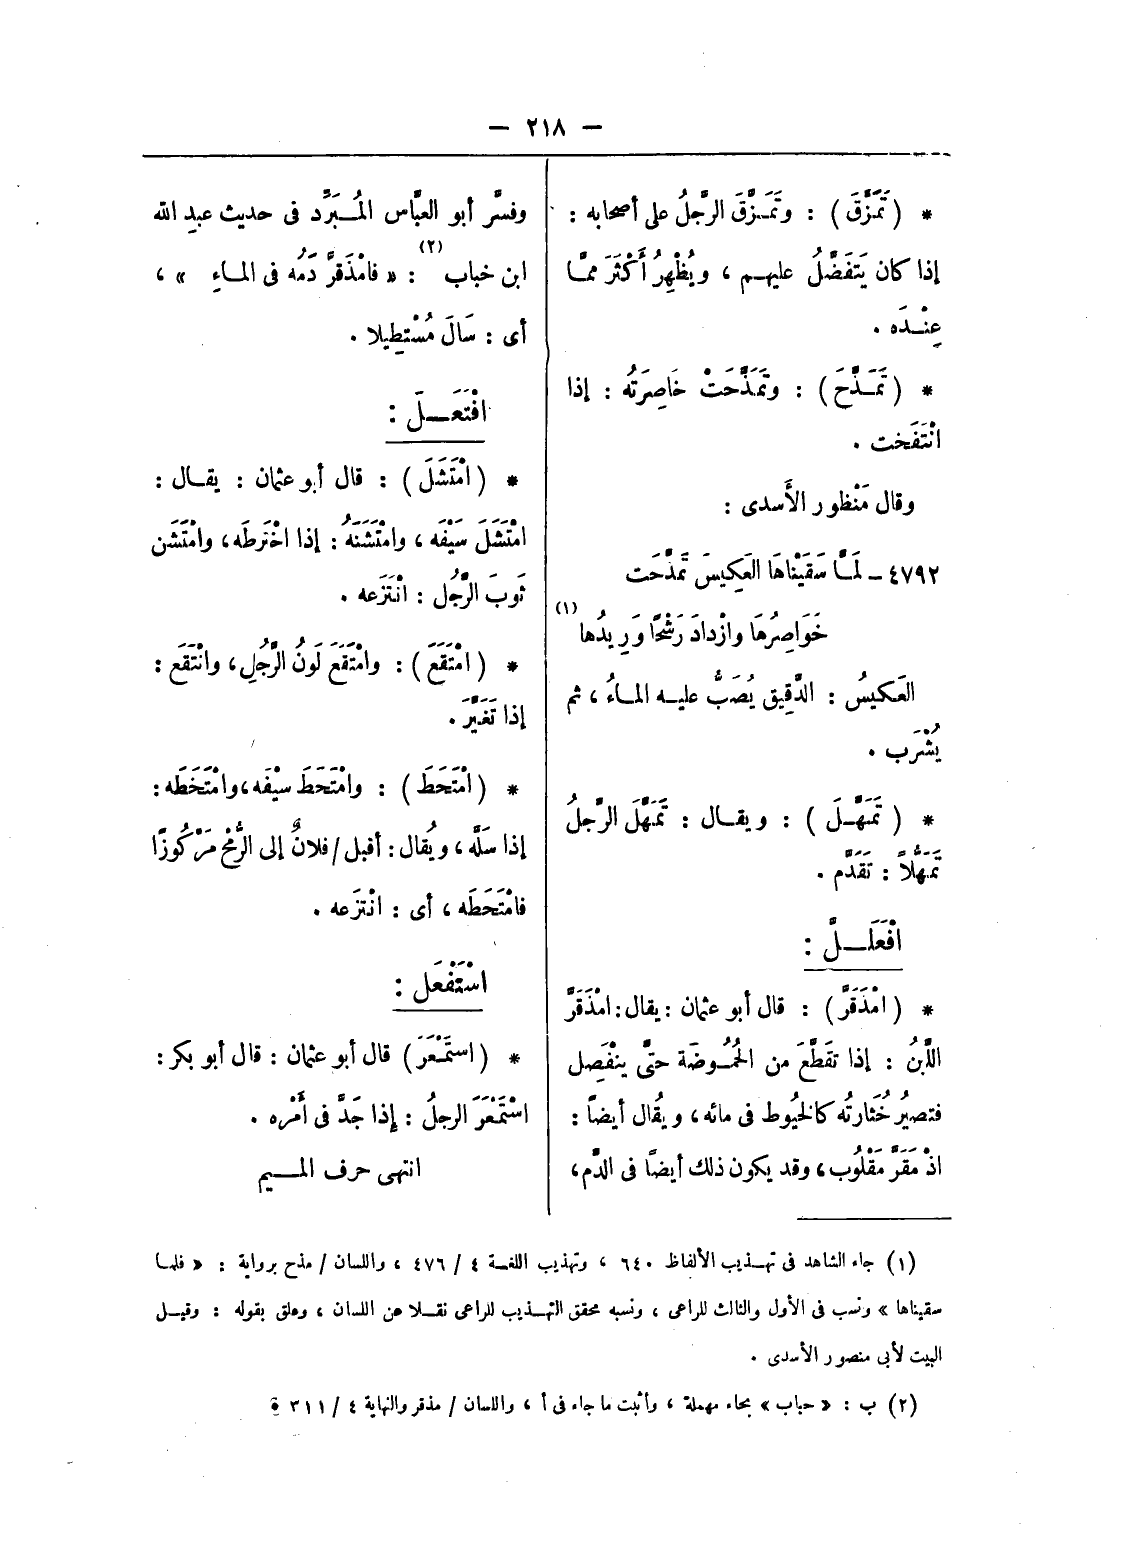 — ٢١٨ —
* (تَمَزَّقَ) : وتَمَزَّقَ الرَّجلُ على أصحابه :
إذا كان يَتَفَضَّلُ عليهم ، ويُظْهِرُ أَكْثَرَ ممَّا
عِنْدَه .
* (تَمَذَّحَ) : وتَمَذَّحَتْ خَاصِرَتُه : إذا
انْتَفَخت .
وقال مَنْظور الأَسدى :
٤٧٩٢ – لَمَّا سَقَيْنَاهَا العَكِيسَ تَمَذَّحَت
خَوَاصِرُهَا وازْدادَ رَشْحًا وَرِيدُها (١)
العَكيسُ : الدَّقِيق يُصَبُّ عليه الماءُ ، ثم
يُشْرَب .
* (تَمَهَّلَ) : ويقال : تَمَهَّلَ الرَّجلُ
تَمَهُّلاً : تَقَدَّم .
افْعَلَلَّ :
* (امْذَقَرَّ) : قال أبو عثمان : يقال : امْذَقَرَّ
اللَّبنُ : إذا تقَطَّعَ من الحُمُوضَة حتَّى ينْفَصِل
فتصيرُ خُثَارتُه كالخيُوط فى مائه ، ويُقال أيضاً :
اذْ مَقَرَّ مَقْلُوب ، وقد يكون ذلك أيضًا فى الدَّم ،
وفسَّر أبو العبَّاس المُبَرَّد فى حديث عبدِ الله
ابن خباب (٢) : « فامْذَقَرَّ دَمُه فى الماءِ » ،
أى : سَالَ مُسْتَطِيلا .
افْتَعَلَ :
* (امْتَشَلَ) : قال أبو عثمان : يقال :
امْتَشَلَ سَيْفَه ، وامْتَشَنَهُ : إذا اخْتَرطَه ، وامْتَشَن
ثَوبَ الرَّجُل : انْتَزَعه .
* (امْتَقَعَ) : وامْتَقَعَ لَونُ الرَّجُلِ ، وانْتَقَع :
إذا تَغَيَّرَ .
* (امْتَحَطَ) : وامْتَحَطَ سيْفَه ، وامْتَخَطَه :
إذا سَلَّه ، ويُقال : أقبل / فلانٌ إلى الرُّمْحِ مَرْكُوزًا
فامْتَحَطَه ، أى : انْتزَعه .
اسْتَفْعَل :
* (استَمْعَرَ) قال أبو عثمان : قال أبو بكر :
اسْتَمْعَرَ الرجلُ : إِذا جَدَّ فى أَمْره .
انتهى حرف الميم
(١) جاء الشاهد فى تهذيب الألفاظ ٦٤٠ ، وتهذيب اللغة ٤ / ٤٧٦ ، واللسان / مذح برواية : « فلما
سقيناها » ونسب فى الأول والثالث للراعى ، ونسبه محقق التهذيب للراعى نقلا عن اللسان ، وعلق بقوله : وقيل
البيت لأبى منصور الأسدى .
(٢) ب : « حباب » بحاء مهملة ، وأثبت ما جاء فى أ ، واللسان / مذقر والنهاية ٤ / ٣١١